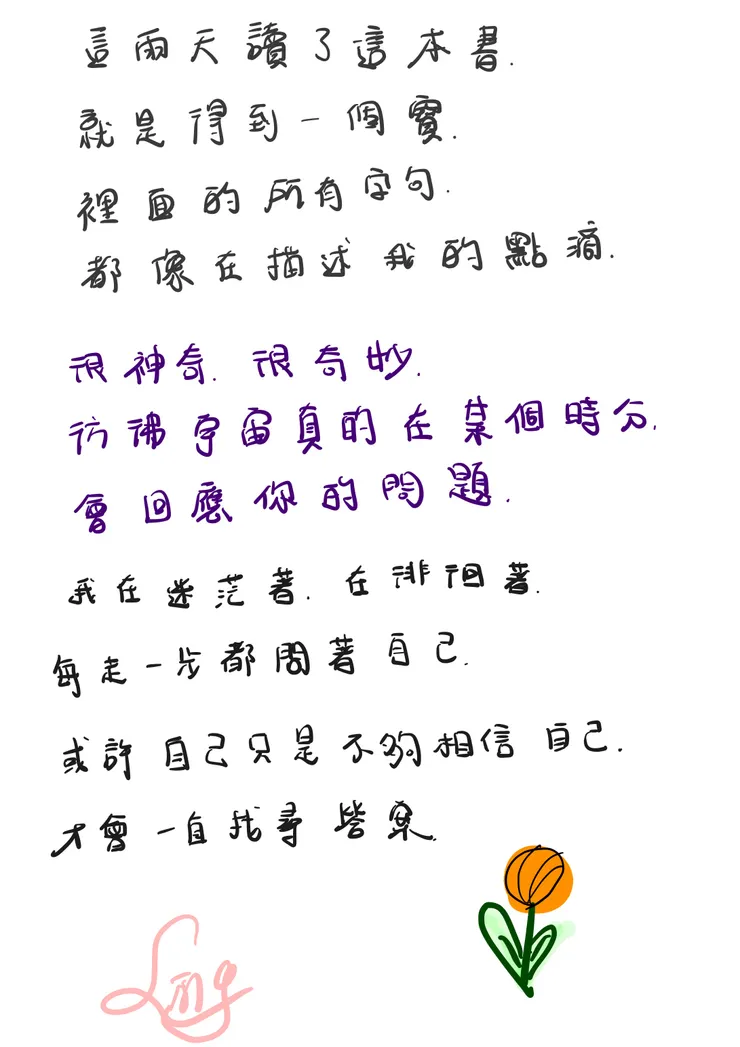 這兩天讀了這本書.
就是得到一個寶.
裡面的所有字句.
都像在描述我的點滴.
很神奇. 很奇妙.
彷彿宇宙真的在某個時分.
會回應你的問題.
我在迷茫著. 在徘徊著.
每走一步都問著自己.
或許自己只是不夠相信自己.
才會一直找尋答案.